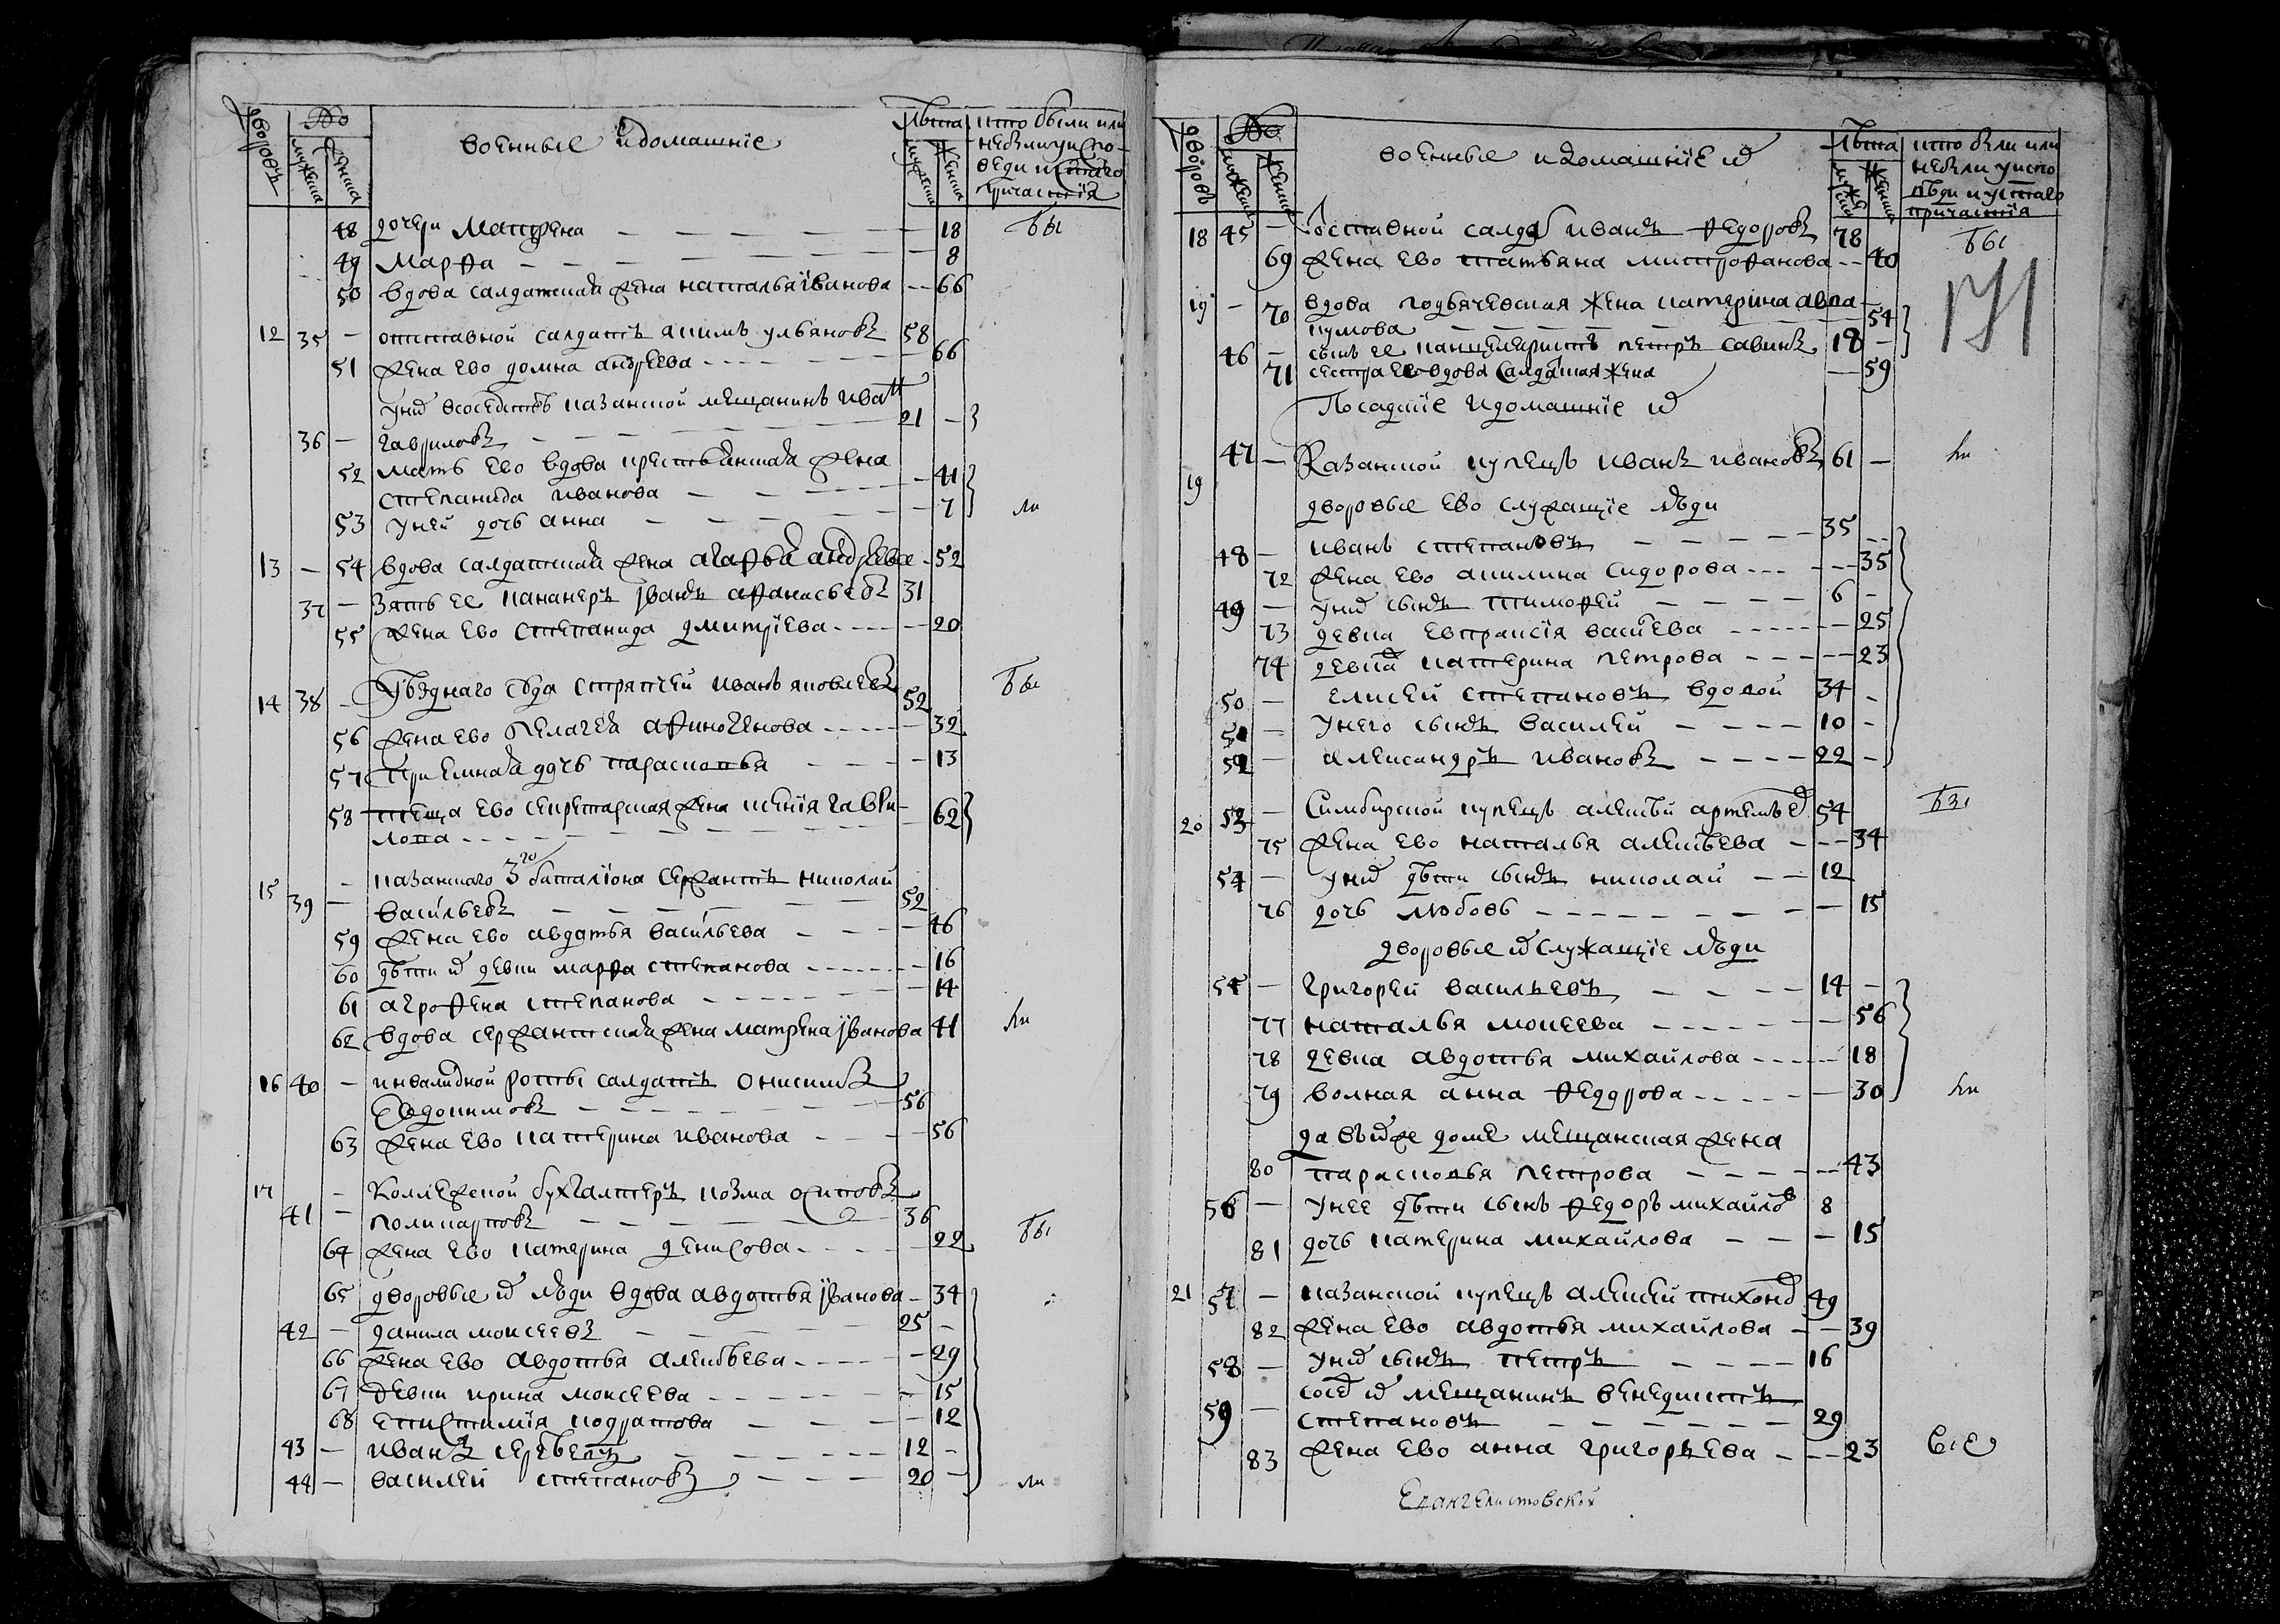 дворовъ
мужеска
женска
военные и домашніе
Лѣта
мужеска
женска
кто были или
небыли у испо-
веди и святаго
причастія
48 дочери Матрена — 18 бы
49 Марфа — 8
50 вдова салдатская жена наталья іванова — 66
12 35 — отставной салдатъ якимъ ульяновъ 58
51 жена ево домна андреева — 66
у них в соседствѣ казанской мещанинъ иванъ
36 — гавриловъ — 21 —
52 мать ево вдова крестьянская жена
степанида иванова — 41
53 у ней дочь анна — 7 ли
13 — 54 вдова салдатская жена агафья андреева — 52
37 — зять ее канонеръ іванъ афанасьевъ 31
55 жена ево степанида дмитріева — 20
14 38 — уѣзднаго суда стряпчей иванъ яковлевъ 52 бы
56 жена ево пелагея афиногенова — 32
57 приемная дочь парасковья — 13
58 теща ево секретарская жена ксенія гаври-
лова — 62
15 — казанскаго 3го баталіона сержантъ николай
39 — васильевъ — 52
59 жена ево авдотья васильева — 46
60 дѣти их девки марфа степанова — 16
61 агрофена степанова — 14
62 вдова сержантская жена матрена іванова 41 ли
16 40 — инвалидной роты салдатъ онисимъ
Евдокимовъ — 56
63 жена ево катерина иванова — 56
17 — Коллежской бухгалтеръ козма осиповъ
41 — поликарповъ — 36
64 жена ево катерина денисова — 22 бы
65 дворовые их люди вдова авдотья іванова — 34
42 — данила моисеевъ — 25 —
66 жена ево авдотья алексѣева — 29
67 девки ирина моисеева — 15
68 епистимія кодратова — 12
43 — иванъ — 12 —
44 — василей степановъ — 20 — ли
дворовъ
мужеска
женска
военные и домашніе их
Лѣта
мужеска
женска
кто были или
небыли у испо
вѣди и у святаго
причастія
18 45 — отставной салдатъ иванъ федоровъ 78 бы
69 жена ево татьяна митрофанова — 40
171
19 — 70 вдова подьяческая жена катерина авва-
кумова — 54
46 — сынъ ее канцеляристъ петръ савинъ 18 —
71 сестра ее вдова салдатская жена — 59
Посадскіе и домашніе их
19 47 — Казанской купецъ иванъ ивановъ 61 — ли
дворовые ево служащіе люди
48 — иванъ степановъ — 35 —
72 жена ево акилина сидорова — 35
49 — у них сынъ тимофей — 6 —
73 девка евпраксія — 25
74 девка катерина петрова — 23
50 — елисей степановъ вдовой 34 —
51 — у него сынъ василей — 10 —
52 — александръ ивановъ — 22 —
20 53 — Симбирской купецъ алексѣй артемьев 54 бы
75 жена ево наталья алексѣева — 34
54 — у них дѣти сынъ николай — 12
76 дочь любовь — 15
дворовые их служащіе люди
54 — григорей васильевъ — 14 —
77 наталья моисеева — 56
78 девка авдотья михайлова — 18
79 волная анна федорова — 30 ли
да в том же доме мещанская жена
80 парасковья петрова — 43
56 — у нее дѣти сынъ федоръ михайлов 8
81 дочь катерина михайлова — 15
21 57 — казанской купецъ алексей тихонов 49
82 жена ево авдотья михайлова — 39
58 — у них сынъ петръ — 16
сосед их мещанинъ венедиктъ
59 — степановъ — 29
83 жена ево анна григорьева — 23
Евангелистовской